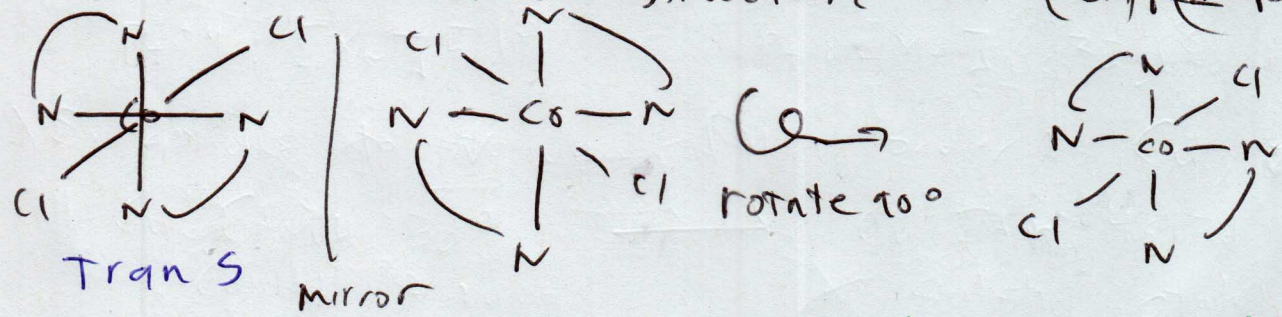 N Cl
N Co N
Cl N
Trans
mirror
N
Cl
N Co N
Cl
N
rotate 90°
N Cl
N Co N
Cl N